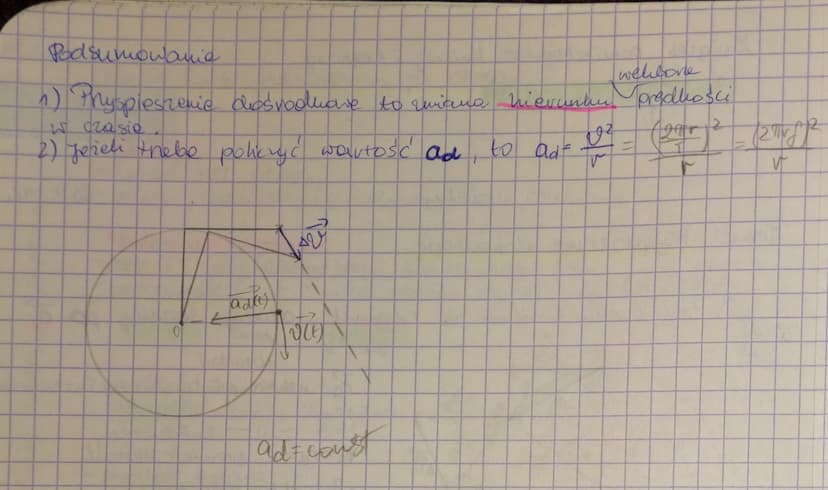 Podsumowanie
wektora
1) Przyspieszenie dośrodkowe to zmiana kierunku prędkości
w czasie.
2) Jeżeli trzeba policzyć wartość ad, to ad = v²/r = (2πr/T)²/r = (2πrf)²/r
Δv⃗
ad(t)
0
v⃗(t)
ad = const